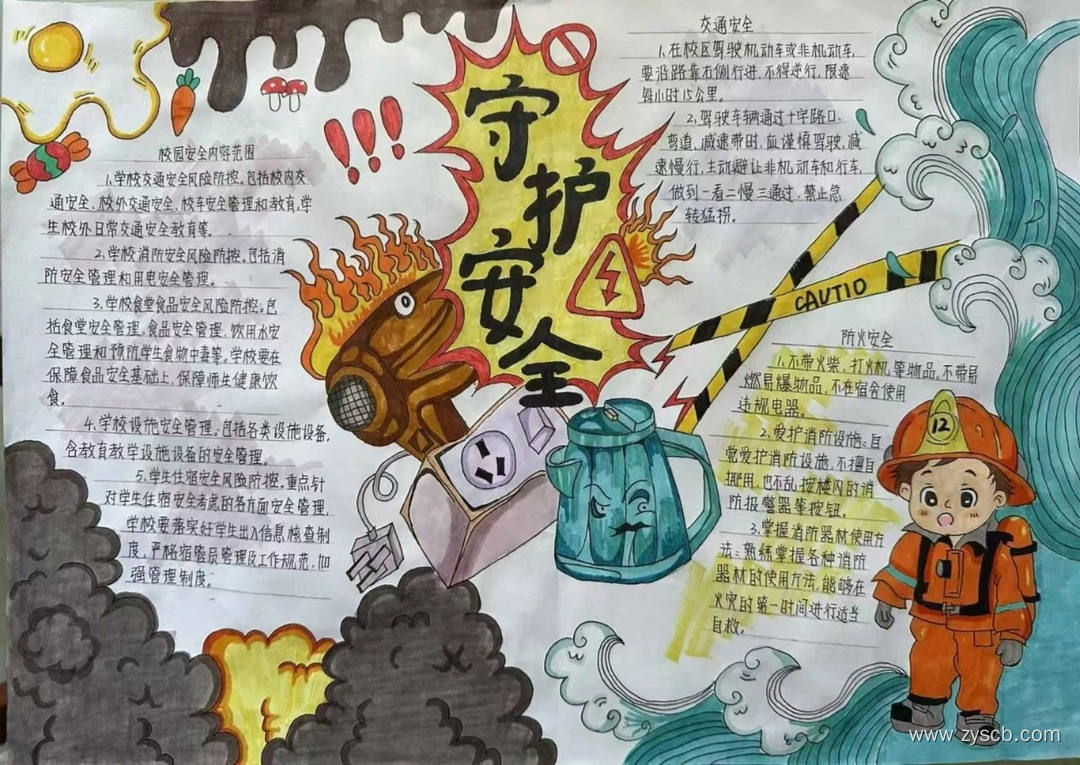 守护安全
校园安全内容范围
1.学校交通安全风险防控。包括校内交
通安全、校外交通安全、校车安全管理和教育，学
生校外日常交通安全教育等。
2.学校消防安全风险防控，包括消
防安全管理和用电安全管理。
3.学校食堂食品安全风险防控。包
括食堂安全管理、食品安全管理、饮用水安
全管理和预防学生食物中毒等。学校要在
保障食品安全基础上，保障师生健康饮
食。
4.学校设施安全管理。包括各类设施设备，
含教育教学设施设备的安全管理。
5.学生住宿安全风险防控。重点针
对学生住宿安全考虑的各方面安全管理，
学校要落实好学生出入信息核查制
度，严格宿管员管理及工作规范，加
强管理制度。
交通安全
1.在校区驾驶机动车或非机动车，
要沿路靠右侧行进，不得逆行，限速
每小时15公里。
2.驾驶车辆通过十字路口、
弯道，减速带时，应谨慎驾驶，减
速慢行，主动避让非机动车和行车，
做到一看二慢三通过，禁止急
转猛拐。
CAUTIO
防火安全
1.不带火柴、打火机等物品，不带易
燃易爆物品，不在宿舍使用
违规电器。
2.爱护消防设施：自
觉爱护消防设施，不擅自
挪用，也不乱按楼内的消
防报警器等按钮。
3.掌握消防器材使用方
法：熟练掌握各种消防
器材的使用方法，能够在
火灾的第一时间进行适当
自救。
12
www.zyscb.com